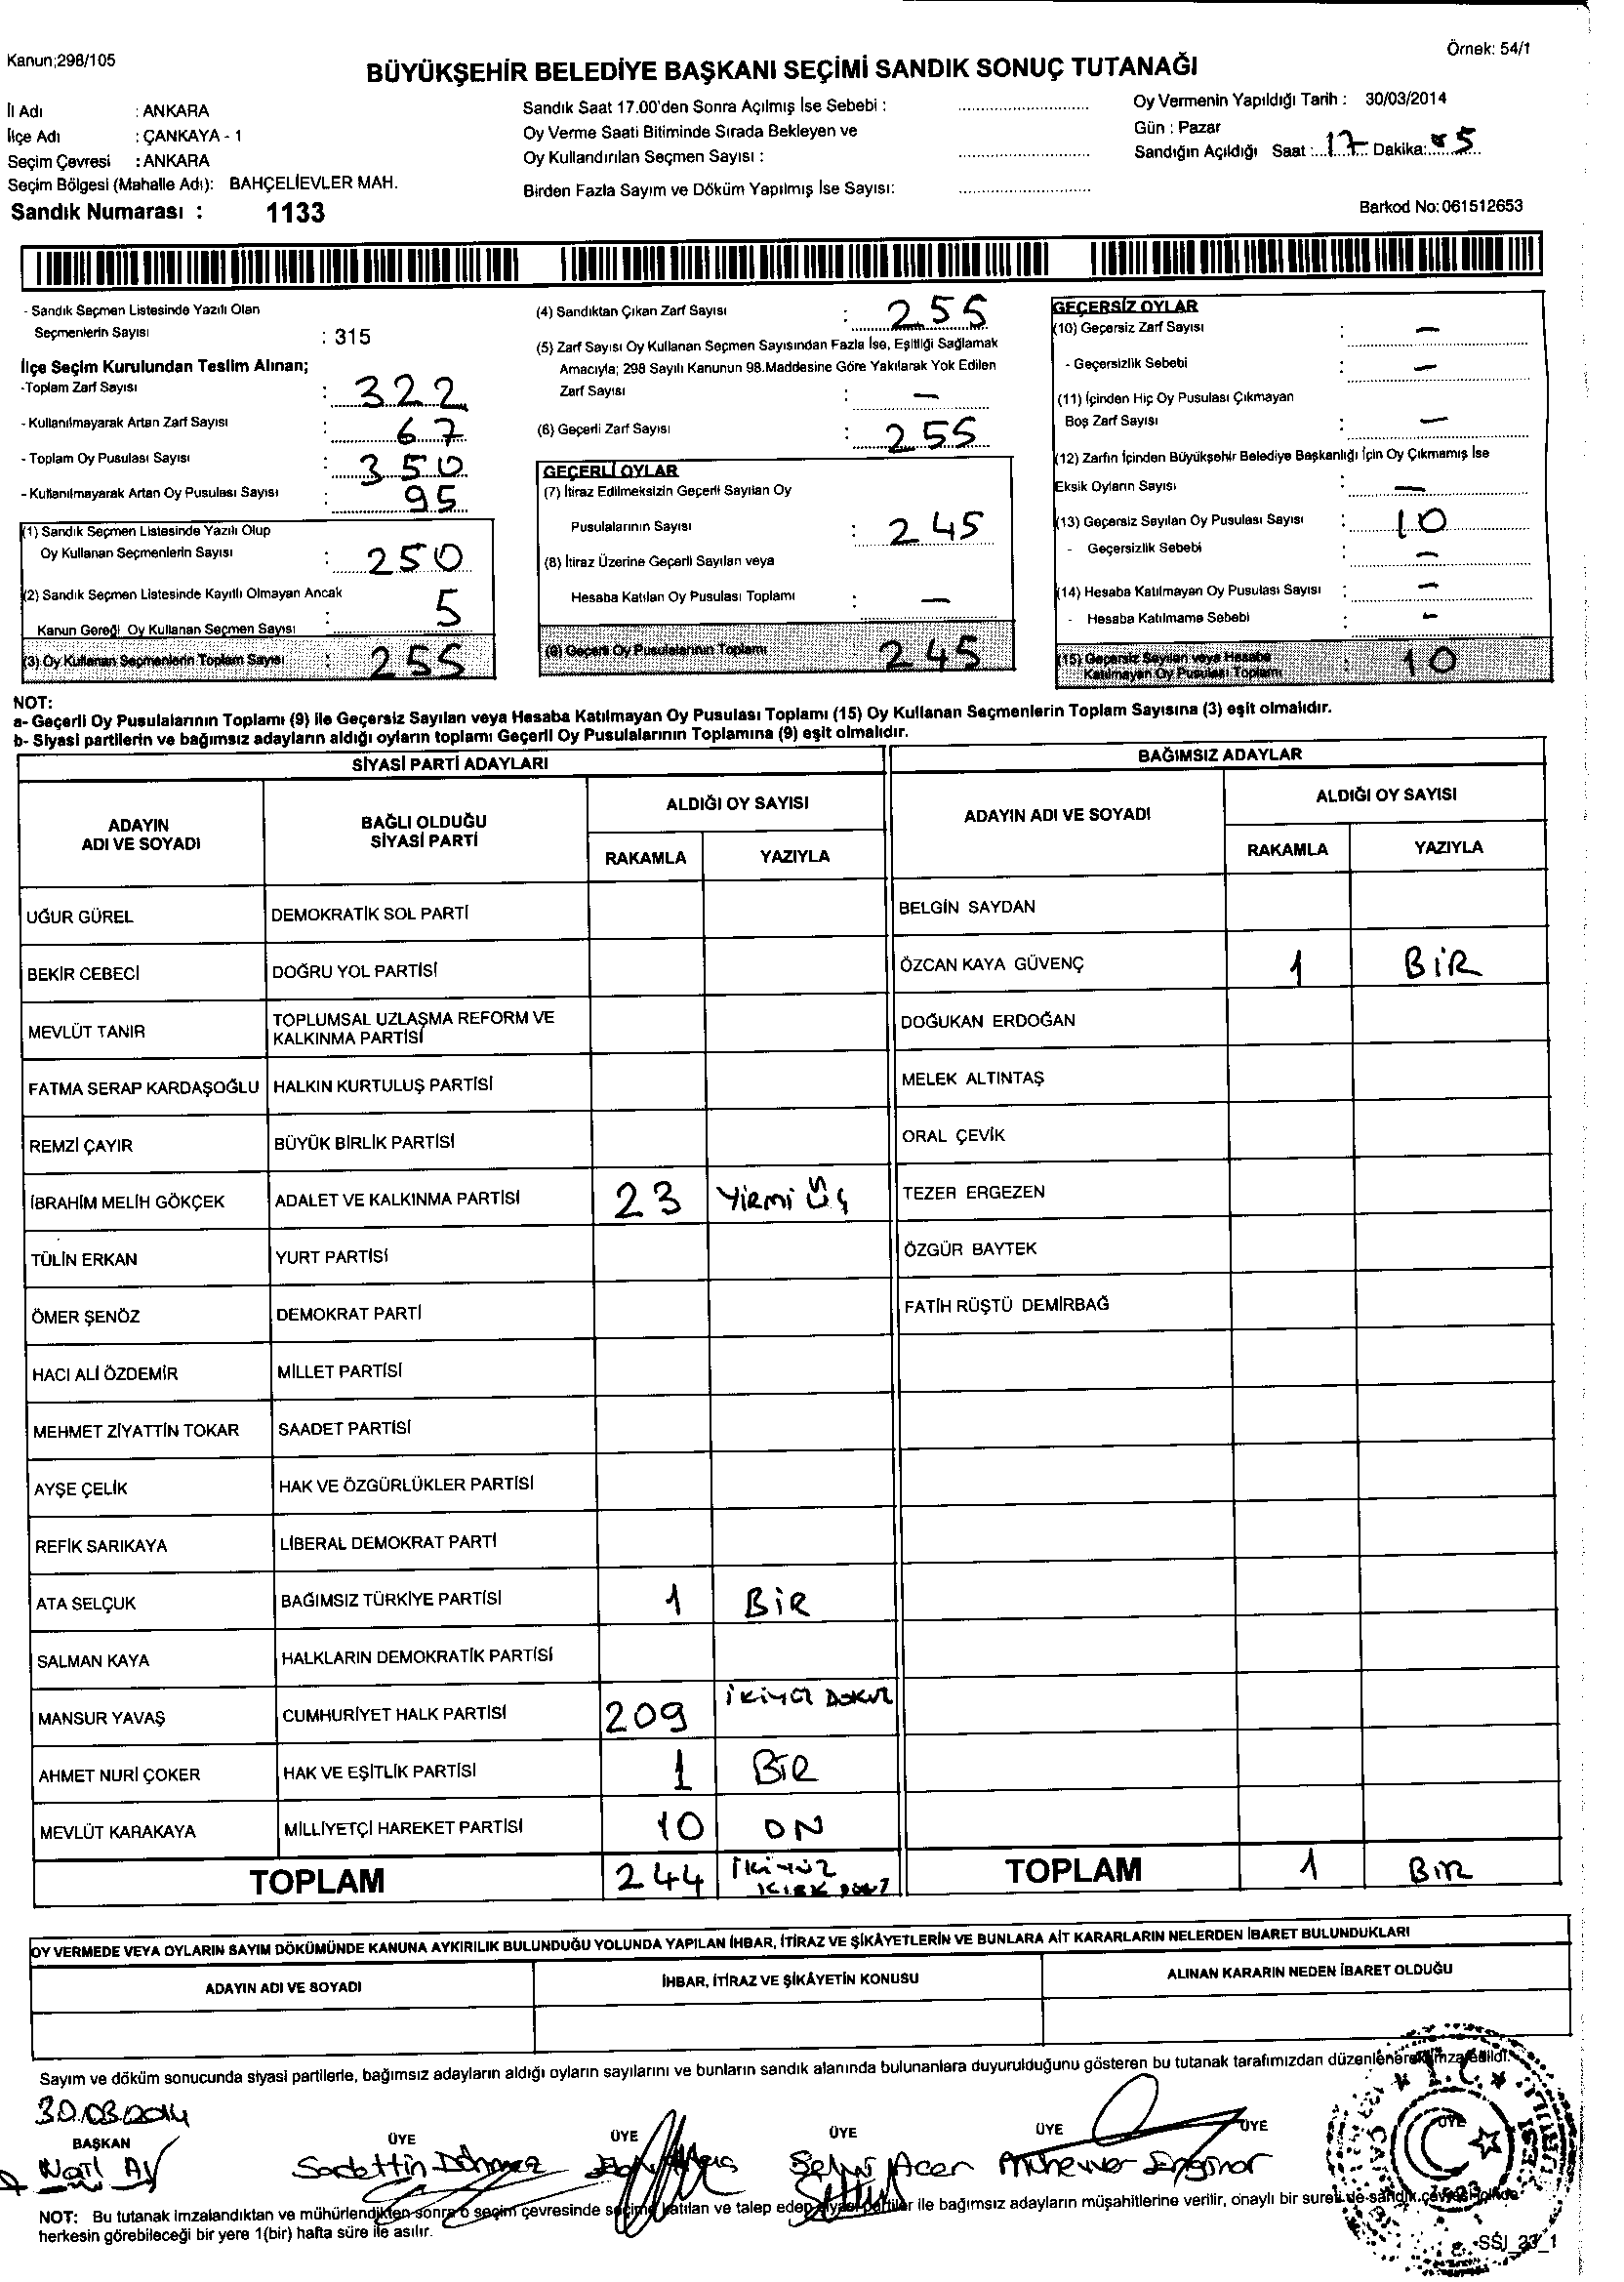 Kanun;298/105
Örnek: 54/1
BÜYÜKŞEHİR BELEDİYE BAŞKANI SEÇİMİ SANDIK SONUÇ TUTANAĞI
İl Adı : ANKARA
İlçe Adı : ÇANKAYA - 1
Seçim Çevresi : ANKARA
Seçim Bölgesi (Mahalle Adı): BAHÇELİEVLER MAH.
Sandık Numarası : 1133
Sandık Saat 17.00'den Sonra Açılmış İse Sebebi :
Oy Verme Saati Bitiminde Sırada Bekleyen ve
Oy Kullandırılan Seçmen Sayısı :
Birden Fazla Sayım ve Döküm Yapılmış İse Sayısı:
Oy Vermenin Yapıldığı Tarih : 30/03/2014
Gün : Pazar
Sandığın Açıldığı Saat : 17 Dakika: 5
Barkod No: 061512653
- Sandık Seçmen Listesinde Yazılı Olan
Seçmenlerin Sayısı : 315
İlçe Seçim Kurulundan Teslim Alınan;
-Toplam Zarf Sayısı : 322
- Kullanılmayarak Artan Zarf Sayısı : 67
- Toplam Oy Pusulası Sayısı : 350
- Kullanılmayarak Artan Oy Pusulası Sayısı : 95
(1) Sandık Seçmen Listesinde Yazılı Olup
Oy Kullanan Seçmenlerin Sayısı : 250
(2) Sandık Seçmen Listesinde Kayıtlı Olmayan Ancak
Kanun Gereği Oy Kullanan Seçmen Sayısı : 5
(3) Oy Kullanan Seçmenlerin Toplam Sayısı : 255
(4) Sandıktan Çıkan Zarf Sayısı : 255
(5) Zarf Sayısı Oy Kullanan Seçmen Sayısından Fazla İse, Eşitliği Sağlamak
Amacıyla; 298 Sayılı Kanunun 98.Maddesine Göre Yakılarak Yok Edilen
Zarf Sayısı : —
(6) Geçerli Zarf Sayısı : 255
GEÇERLİ OYLAR
(7) İtiraz Edilmeksizin Geçerli Sayılan Oy
Pusulalarının Sayısı : 245
(8) İtiraz Üzerine Geçerli Sayılan veya
Hesaba Katılan Oy Pusulası Toplamı : —
(9) Geçerli Oy Pusulalarının Toplamı 245
GEÇERSİZ OYLAR
(10) Geçersiz Zarf Sayısı : —
- Geçersizlik Sebebi : —
(11) İçinden Hiç Oy Pusulası Çıkmayan
Boş Zarf Sayısı : —
(12) Zarfın İçinden Büyükşehir Belediye Başkanlığı İçin Oy Çıkmamış İse
Eksik Oyların Sayısı : —
(13) Geçersiz Sayılan Oy Pusulası Sayısı : 10
- Geçersizlik Sebebi : —
(14) Hesaba Katılmayan Oy Pusulası Sayısı : —
- Hesaba Katılmama Sebebi : —
(15) Geçersiz Sayılan veya Hesaba
Katılmayan Oy Pusulası Toplamı : 10
NOT:
a- Geçerli Oy Pusulalarının Toplamı (9) ile Geçersiz Sayılan veya Hesaba Katılmayan Oy Pusulası Toplamı (15) Oy Kullanan Seçmenlerin Toplam Sayısına (3) eşit olmalıdır.
b- Siyasi partilerin ve bağımsız adayların aldığı oyların toplamı Geçerli Oy Pusulalarının Toplamına (9) eşit olmalıdır.
SİYASİ PARTİ ADAYLARI
ADAYIN ADI VE SOYADI
BAĞLI OLDUĞU SİYASİ PARTİ
ALDIĞI OY SAYISI
RAKAMLA YAZIYLA
UĞUR GÜREL DEMOKRATİK SOL PARTİ
BEKİR CEBECİ DOĞRU YOL PARTİSİ
MEVLÜT TANIR TOPLUMSAL UZLAŞMA REFORM VE KALKINMA PARTİSİ
FATMA SERAP KARDAŞOĞLU HALKIN KURTULUŞ PARTİSİ
REMZİ ÇAYIR BÜYÜK BİRLİK PARTİSİ
İBRAHİM MELİH GÖKÇEK ADALET VE KALKINMA PARTİSİ 23 Yirmi Üç
TÜLİN ERKAN YURT PARTİSİ
ÖMER ŞENÖZ DEMOKRAT PARTİ
HACI ALİ ÖZDEMİR MİLLET PARTİSİ
MEHMET ZİYATTİN TOKAR SAADET PARTİSİ
AYŞE ÇELİK HAK VE ÖZGÜRLÜKLER PARTİSİ
REFİK SARIKAYA LİBERAL DEMOKRAT PARTİ
ATA SELÇUK BAĞIMSIZ TÜRKİYE PARTİSİ 1 BİR
SALMAN KAYA HALKLARIN DEMOKRATİK PARTİSİ
MANSUR YAVAŞ CUMHURİYET HALK PARTİSİ 209 İKİYÜZ DOKUZ
AHMET NURİ ÇOKER HAK VE EŞİTLİK PARTİSİ 1 BİR
MEVLÜT KARAKAYA MİLLİYETÇİ HAREKET PARTİSİ 10 ON
TOPLAM 244 İKİYÜZ KIRK DÖRT
BAĞIMSIZ ADAYLAR
ADAYIN ADI VE SOYADI
ALDIĞI OY SAYISI
RAKAMLA YAZIYLA
BELGİN SAYDAN
ÖZCAN KAYA GÜVENÇ 1 BİR
DOĞUKAN ERDOĞAN
MELEK ALTINTAŞ
ORAL ÇEVİK
TEZER ERGEZEN
ÖZGÜR BAYTEK
FATİH RÜŞTÜ DEMİRBAĞ
TOPLAM 1 BİR
OY VERMEDE VEYA OYLARIN SAYIM DÖKÜMÜNDE KANUNA AYKIRILIK BULUNDUĞU YOLUNDA YAPILAN İHBAR, İTİRAZ VE ŞİKÂYETLERİN VE BUNLARA AİT KARARLARIN NELERDEN İBARET BULUNDUKLARI
ADAYIN ADI VE SOYADI İHBAR, İTİRAZ VE ŞİKÂYETİN KONUSU ALINAN KARARIN NEDEN İBARET OLDUĞU
Sayım ve döküm sonucunda siyasi partilerle, bağımsız adayların aldığı oyların sayılarını ve bunların sandık alanında bulunanlara duyurulduğunu gösteren bu tutanak tarafımızdan düzenlenerek imza edildi.
30.03.2014
BAŞKAN ÜYE ÜYE ÜYE ÜYE ÜYE ÜYE
Nail Ay Sadettin Dönmez Selvi Acer Münevver Enginar
T.C.
NOT: Bu tutanak imzalandıktan ve mühürlendikten sonra o seçim çevresinde seçime katılan ve talep eden siyasi partiler ile bağımsız adayların müşahitlerine verilir, onaylı bir sureti de sandık çevresi içinde
herkesin görebileceği bir yere 1(bir) hafta süre ile asılır.